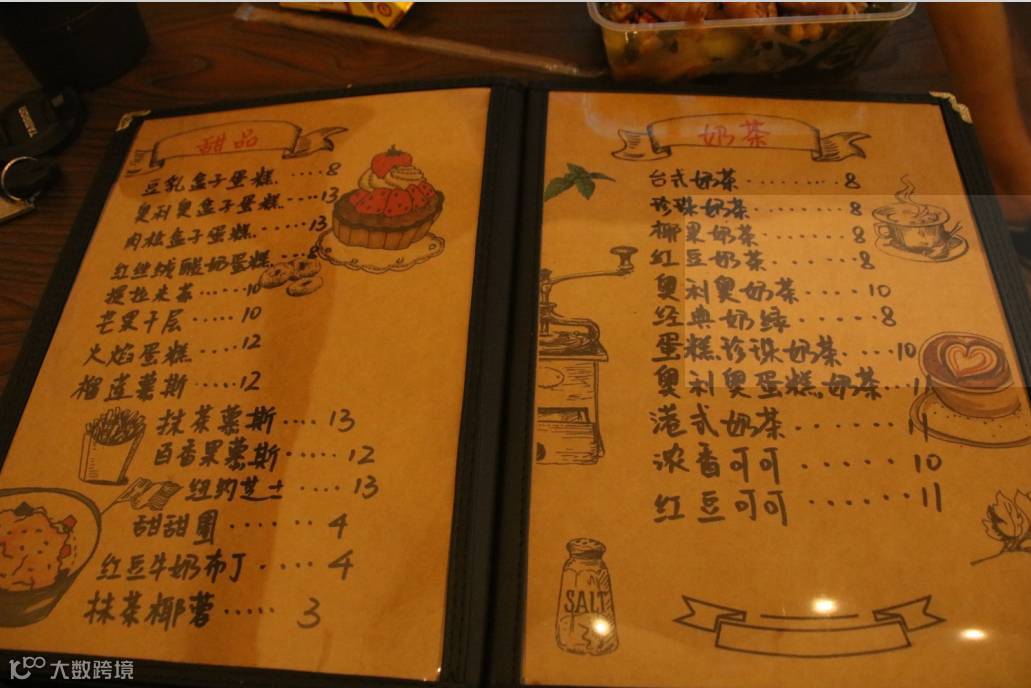 甜品
豆乳盒子蛋糕....8
奥利奥盒子蛋糕....13
肉松盒子蛋糕......13
红丝绒酸奶蛋糕....8
提拉米苏......10
芒果千层.....10
火焰蛋糕....12
榴莲慕斯.....12
抹茶慕斯....13
百香果慕斯.....12
纽约芝士....13
甜甜圈......4
红豆牛奶布丁.....4
抹茶椰蓉.....3
奶茶
台式奶茶.........8
珍珠奶茶.......8
椰果奶茶.......8
红豆奶茶.......8
奥利奥奶茶....10
经典奶绿.....8
蛋糕珍珠奶茶....10
奥利奥蛋糕奶茶...11
港式奶茶......11
浓香可可.....10
红豆可可......11
SALT
TAMRON
大数跨境